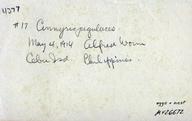 4377
#17 Cinnyris jugularis
May 4, 1914 Alfred Worm
Cebu Isd. Philippines
eggs + nest